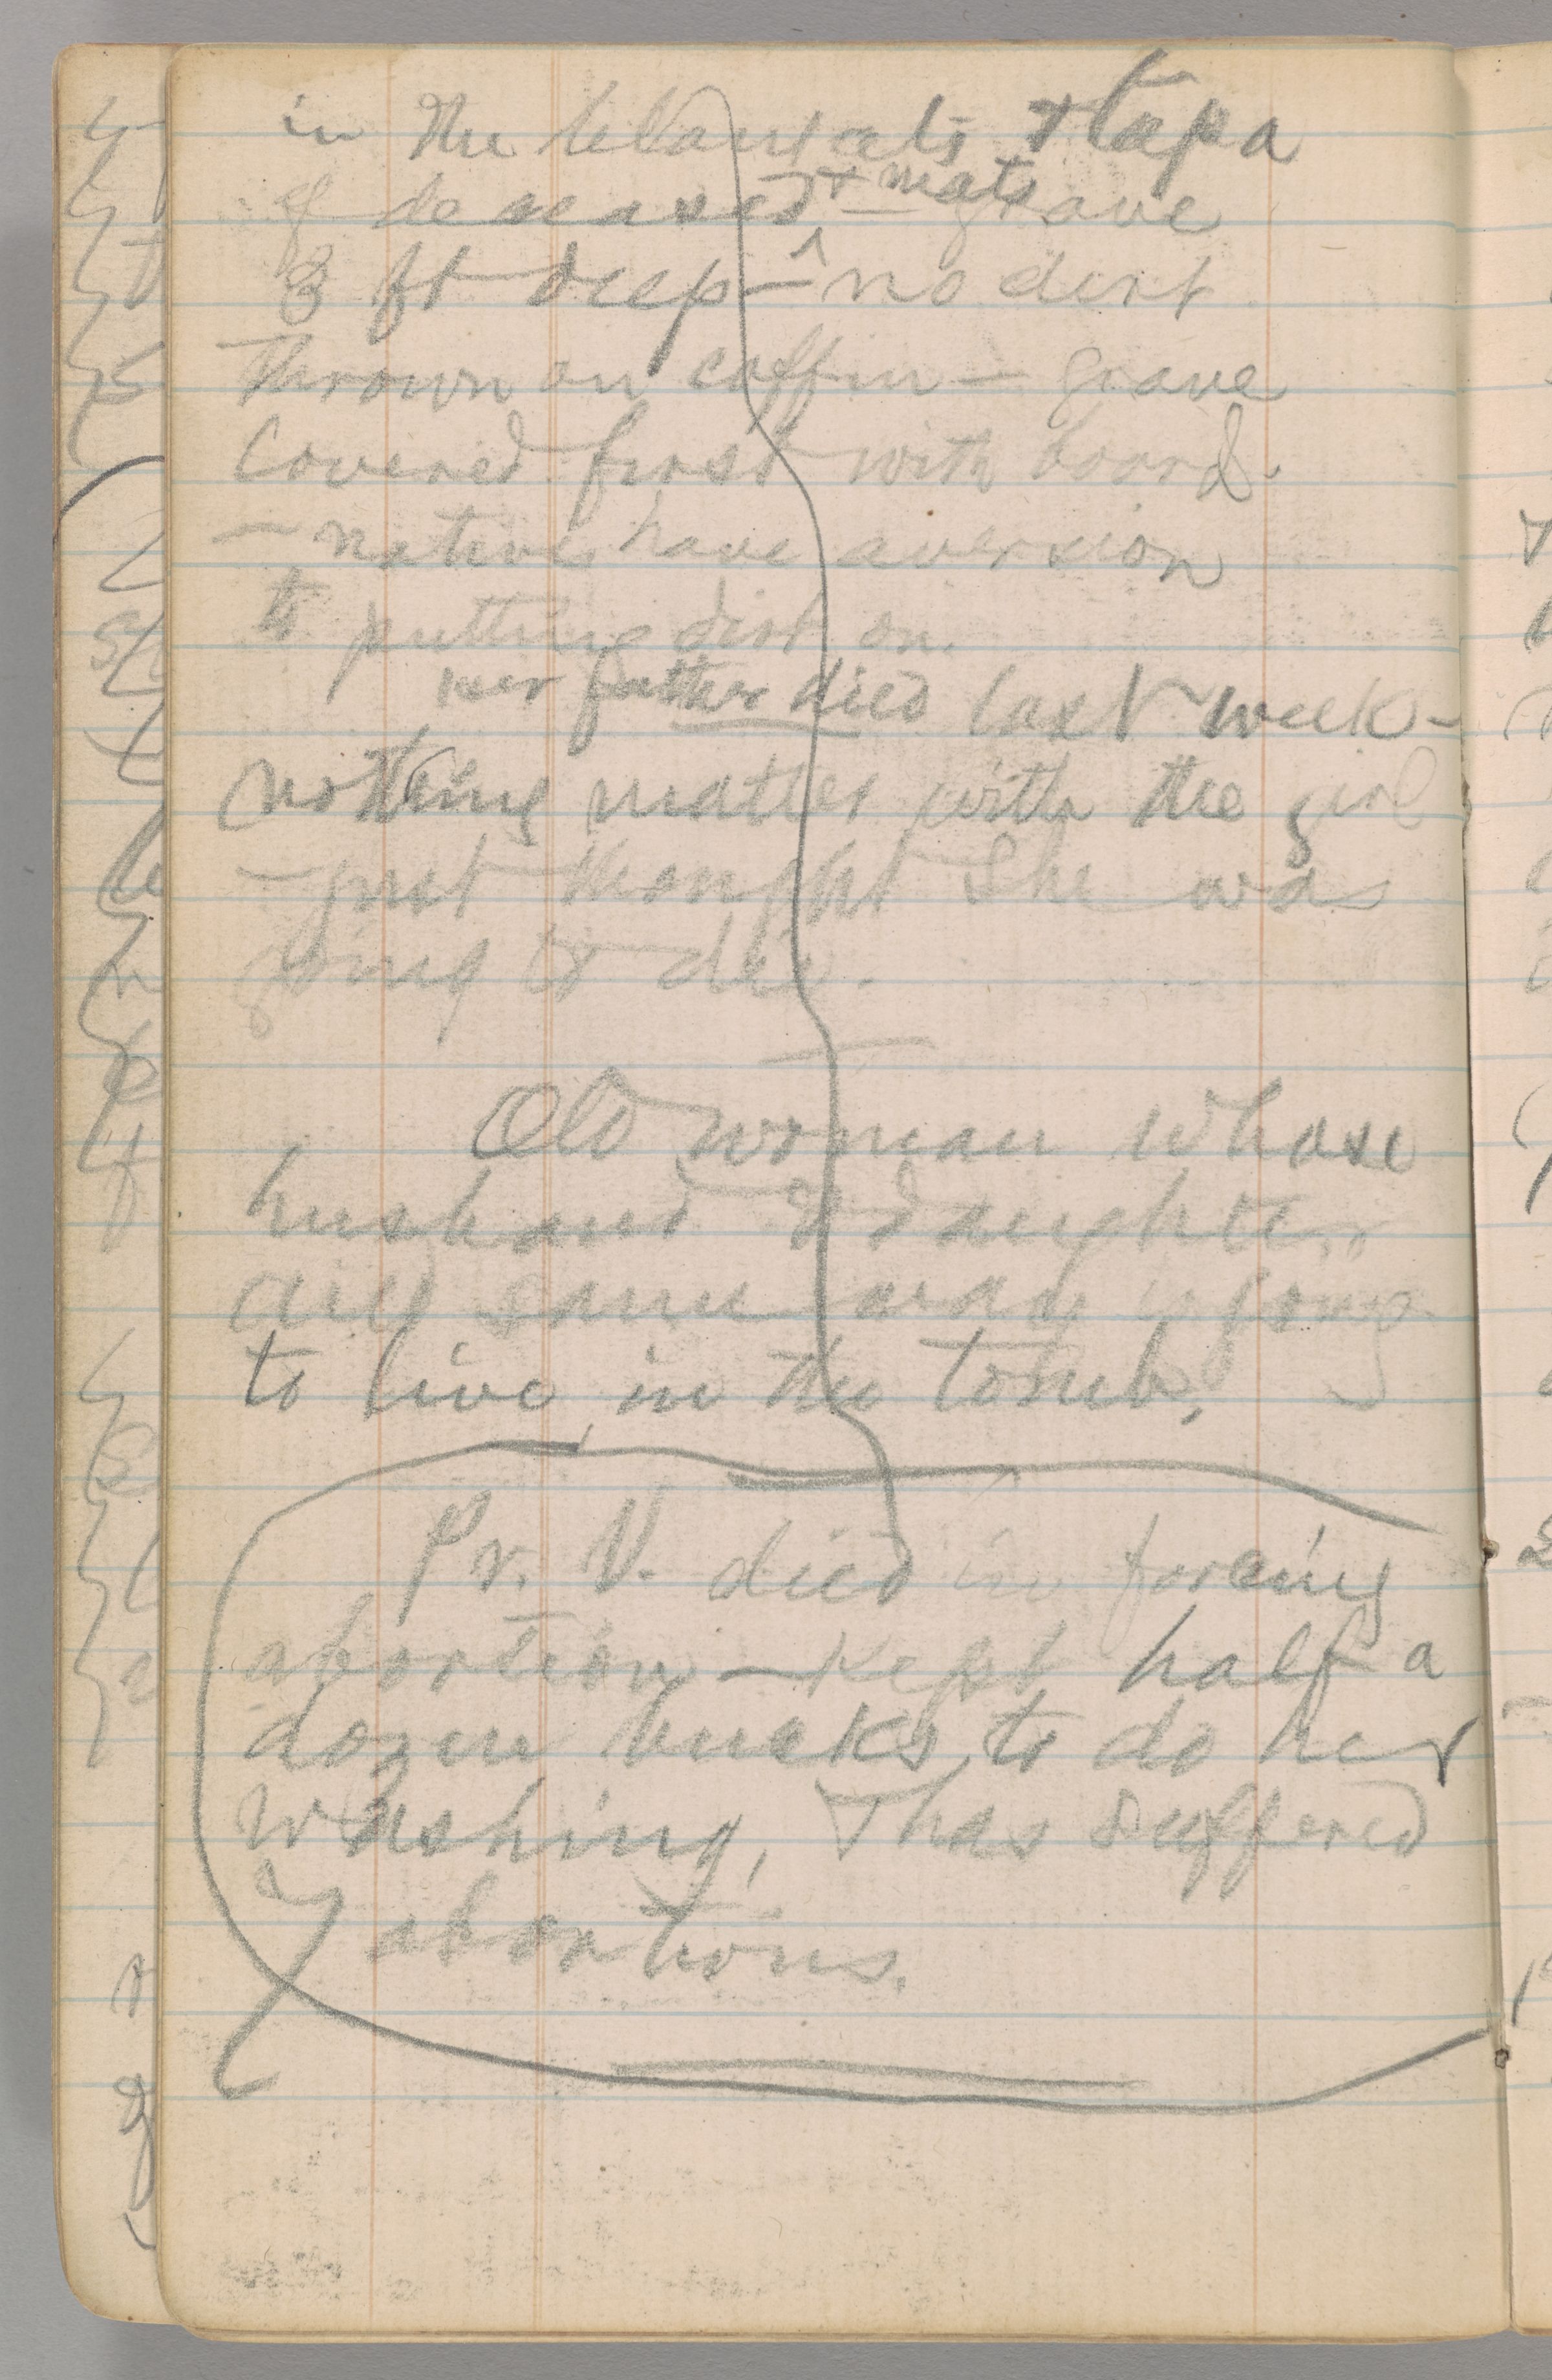 in the belongings & tapa
of deceased + mats — grave
8 ft deep — no dirt
thrown on coffin — grave
covered first with boards.
— natives have aversion
to putting dirt on.
Her father died last week —
nothing matter with the girl
— just thought she was
going to die.
Old woman whose
husband & daughter
died same way is going
to live in the tomb.
Pr. V. died in forcing
abortion — Kept half a
dozen bucks to do her
washing, & has suffered
7 abortions.